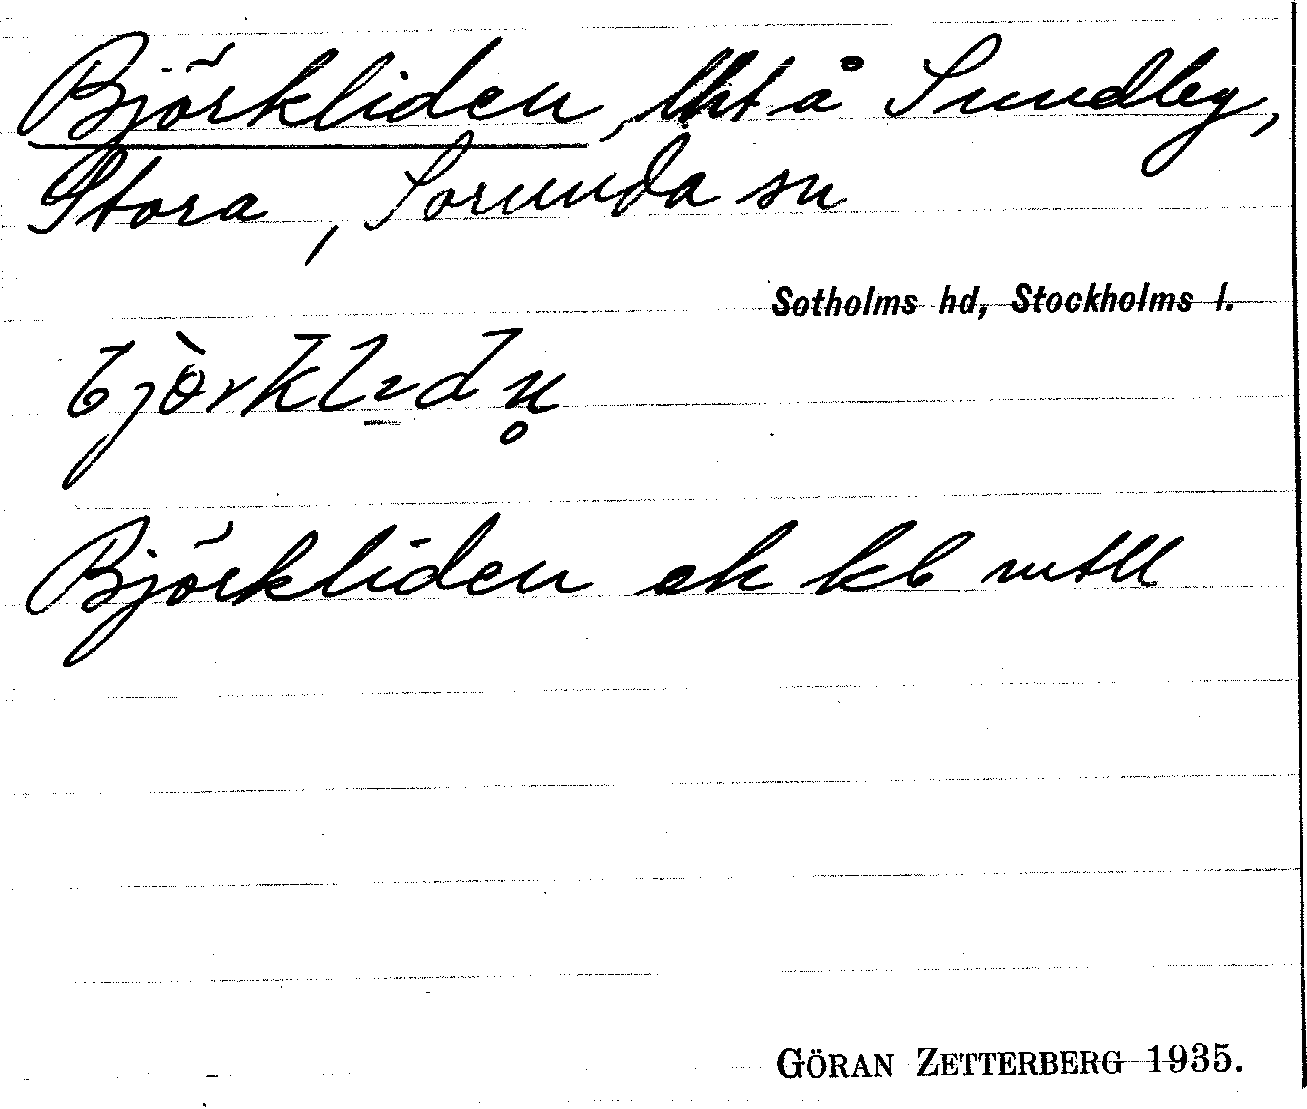 Björkliden, lht å Sundby,
Stora, Sorunda sn
Sotholms hd, Stockholms l.
Björkliden ek kb mtll
GÖRAN ZETTERBERG 1935.